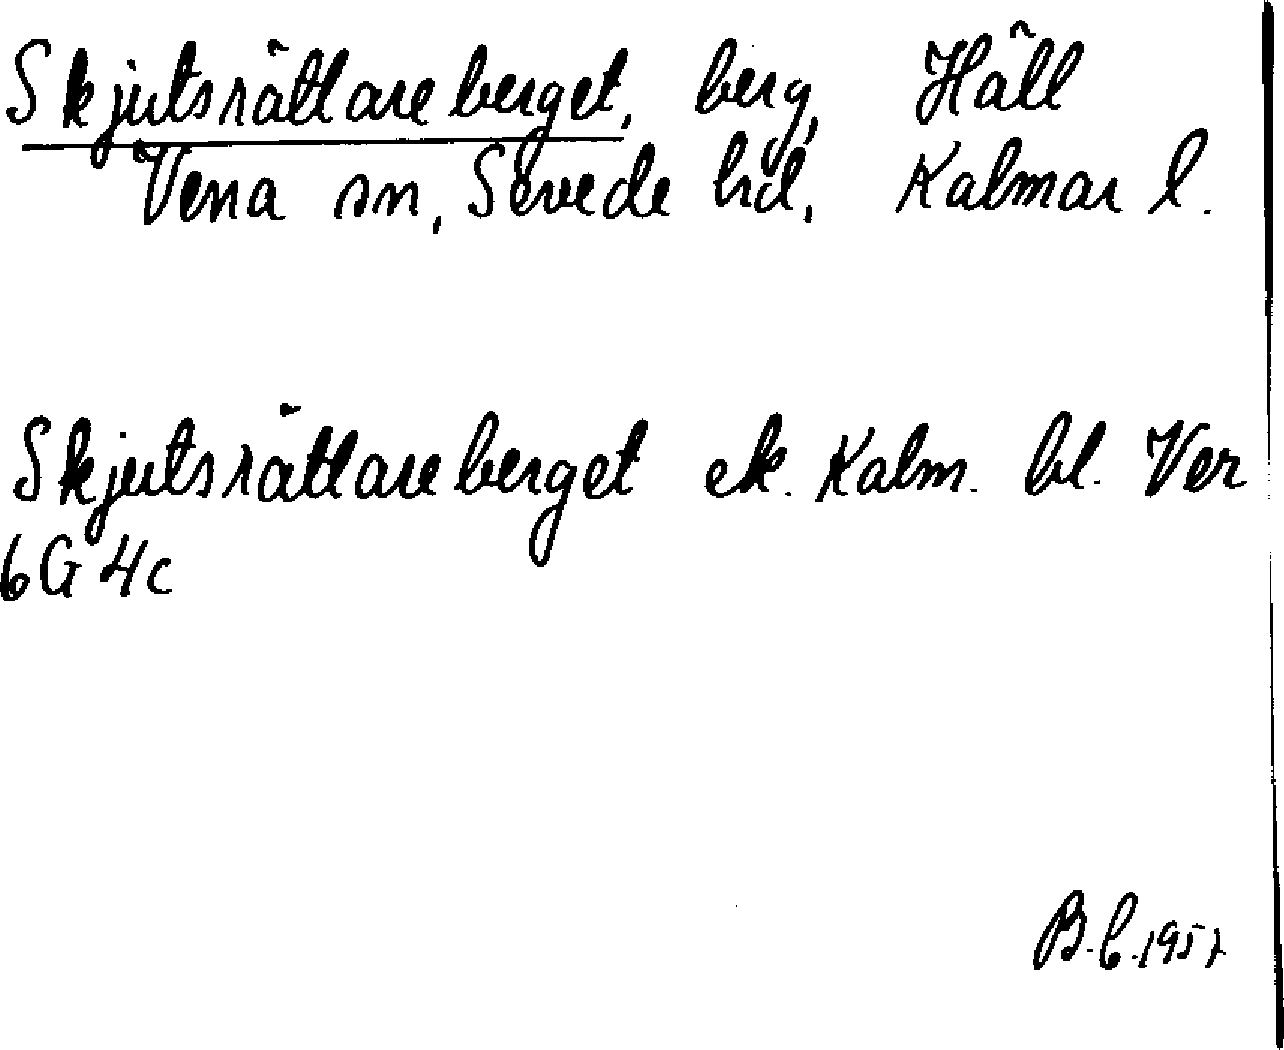 Skjutsrättareberget, berg, Håll
Vena sn, Sevede hd, Kalmar l.
Skjutsrättareberget ek. Kalm. bl. Ver
6G 4c
B.C. 1957